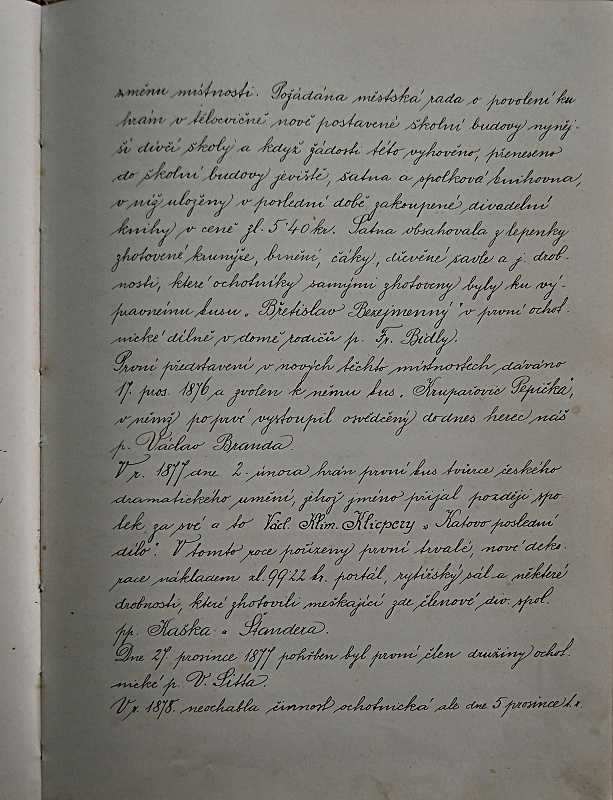 změnu místnosti. Požádána městská rada o povolení ku
hrám v tělocvičně nově postavené školní budovy nyněj-
ší dívčí školy a když žádosti této vyhověno, přeneseno
do školní budovy jeviště, šatna a spolková knihovna,
v níž uloženy v poslední době zakoupené divadelní
knihy v ceně zl. 5·40 kr. Šatna obsahovala z lepenky
zhotovené krunýře, brnění, čáky, dřevěné šavle a j. drob-
nosti, které ochotníky samými zhotoveny byly ku vý-
pravnému kusu „Břetislav Bezejmenný" v první ochot-
nické dílně v domě rodičů p. Fr. Bidly.
První představení v nových těchto místnostech dáváno
17. pros. 1876 a zvolen k němu kus „Krupařovic Pepička",
v němž po prvé vystoupil osvědčený dodnes herec náš
p. Václav Branda.
V r. 1877 dne 2. února hrán první kus tvůrce českého
dramatického umění, jehož jméno přijal později spo-
lek za své a to Václ. Klim. Klicpery „Katovo poslední
dílo". V tomto roce pořízeny první trvalé, nové deko-
race nákladem zl. 99·22 kr. portál, rytířský sál a některé
drobnosti, které zhotovili meškající zde členové div. spol.
pp. Kaška a Štandera.
Dne 27. prosince 1877 pohřben byl první člen družiny ochot-
nické p. V. Sitta.
V r. 1878. neochabla činnost ochotnická ale dne 5 prosince t. r.